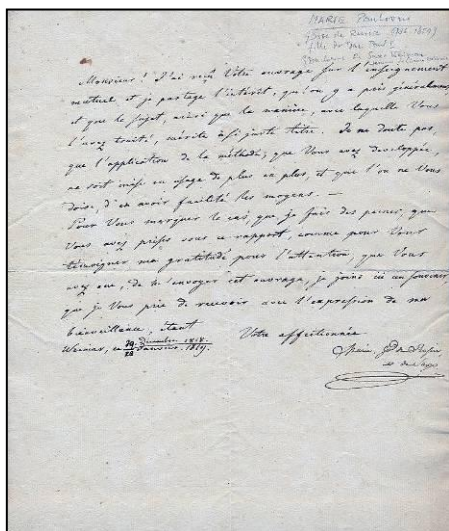 MARIE Paulowna
Monsieur! J'ai reçu Votre ouvrage sur l'enseignement
mutuel et je partage l'intérêt, qu'on y a pris généralement
et que le sujet, ainsi que la manière, avec laquelle Vous
l'avez traité, mérite à si juste titre. Je ne doute pas,
que l'application de la méthode, que Vous avez developpée,
ne soit mise en usage de plus en plus, et que l'on ne Vous
doive, d'en avoir facilité les moyens. —
Pour Vous marquer le cas, que je fais des peines, que
Vous avez prises sous ce rapport, comme pour Vous
témoigner ma gratitude pour l'attention, que Vous
avez eue, de m'envoyer cet ouvrage, je joins ici un souvenir,
que je Vous prie de recevoir avec l'expression de ma
bienveillance, étant
Votre affectionnée
Weimar, ce Decembre 1818.
Janvier 1819.
Marie,